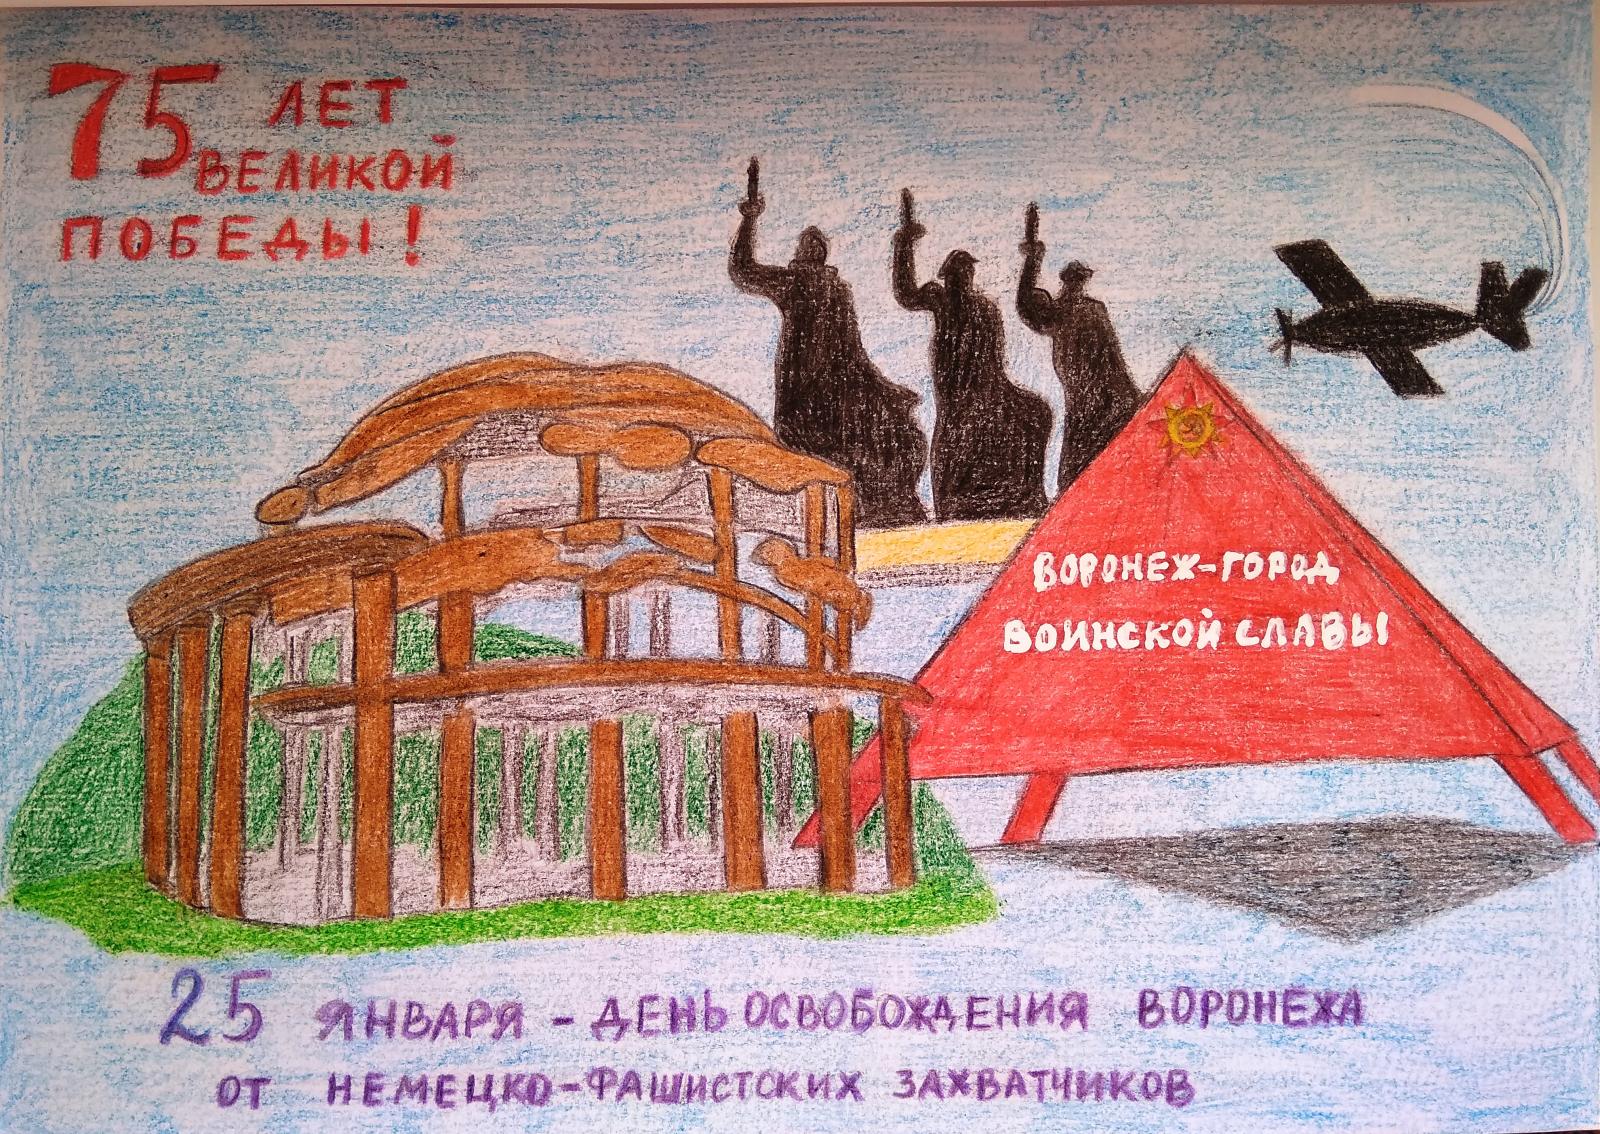 75 ЛЕТ
ВЕЛИКОЙ
ПОБЕДЫ!
ВОРОНЕЖ-ГОРОД
ВОИНСКОЙ СЛАВЫ
25 ЯНВАРЯ - ДЕНЬ ОСВОБОЖДЕНИЯ ВОРОНЕЖА
ОТ НЕМЕЦКО-ФАШИСТСКИХ ЗАХВАТЧИКОВ